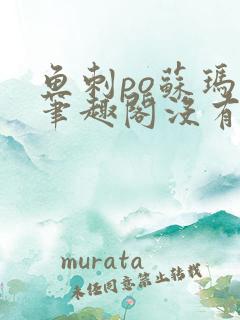 魚刺po蘇瑪麗
筆趣閣沒有
murata
未经同意禁止转载